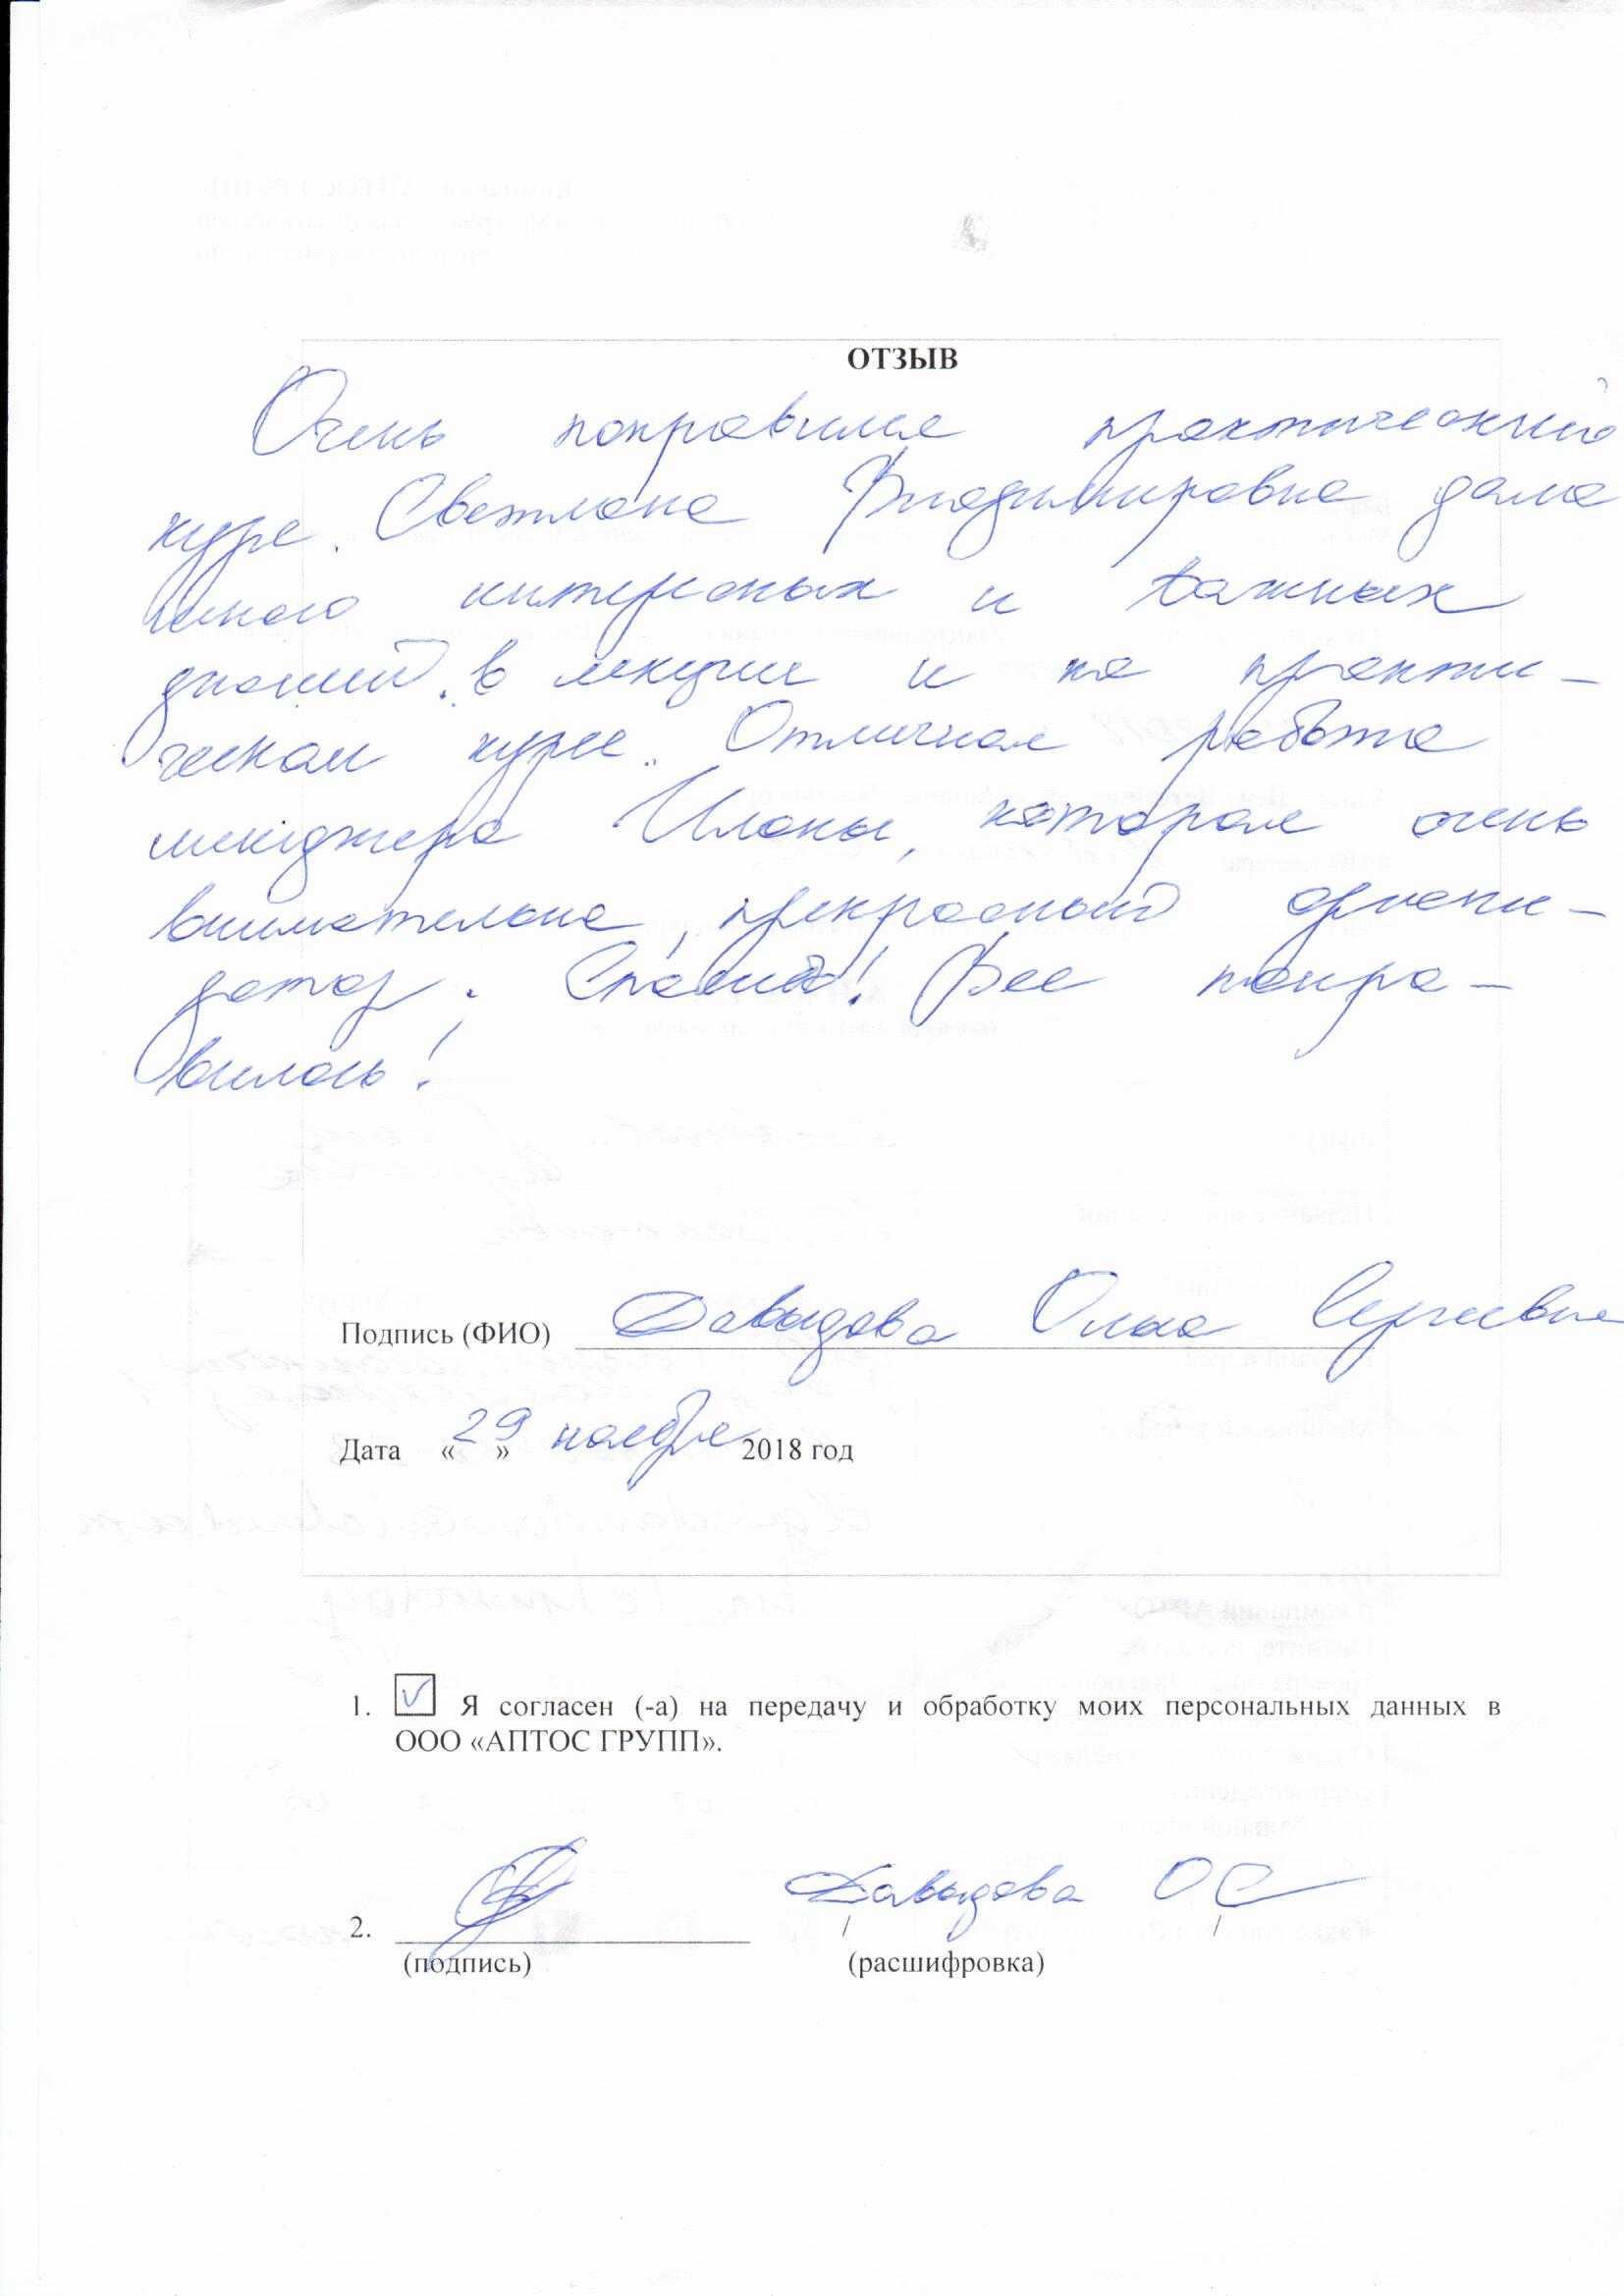 ОТЗЫВ
Очень понравился практический
курс. Светлана Владимировна дала
много интересных и важных
знаний в лекции и на практи-
ческом курсе. Отличная работа
менеджера Илоны, которая очень
внимательна, прекрасный органи-
затор. Спасибо! Все понра-
вилось!
Подпись (ФИО) Давыдова Ольга Сергеевна
Дата « 29 » ноября 2018 год
1. Я согласен (-а) на передачу и обработку моих персональных данных в
ООО «АПТОС ГРУПП».
2. / Давыдова О С /
(подпись) (расшифровка)